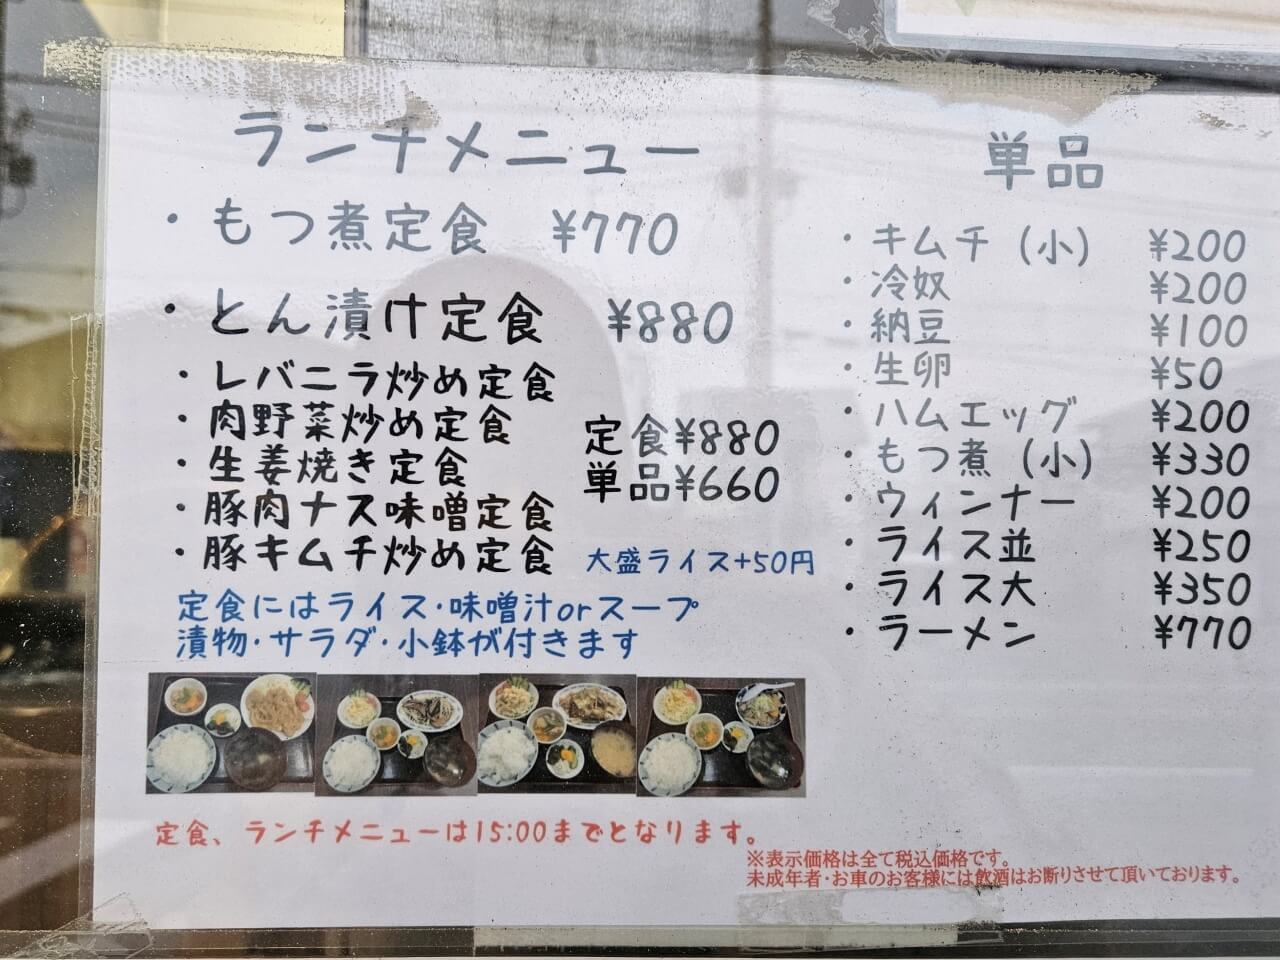 ランチメニュー
・もつ煮定食 ¥770
・とん漬け定食 ¥880
・レバニラ炒め定食
・肉野菜炒め定食
・生姜焼き定食
・豚肉ナス味噌定食
・豚キムチ炒め定食
定食¥880
単品¥660
大盛ライス+50円
定食にはライス・味噌汁orスープ
漬物・サラダ・小鉢が付きます
定食、ランチメニューは15:00までとなります。
単品
・キムチ(小) ¥200
・冷奴 ¥200
・納豆 ¥100
・生卵 ¥50
・ハムエッグ ¥200
・もつ煮(小) ¥330
・ウィンナー ¥200
・ライス並 ¥250
・ライス大 ¥350
・ラーメン ¥770
※表示価格は全て税込価格です。
未成年者・お車のお客様には飲酒はお断りさせて頂いております。